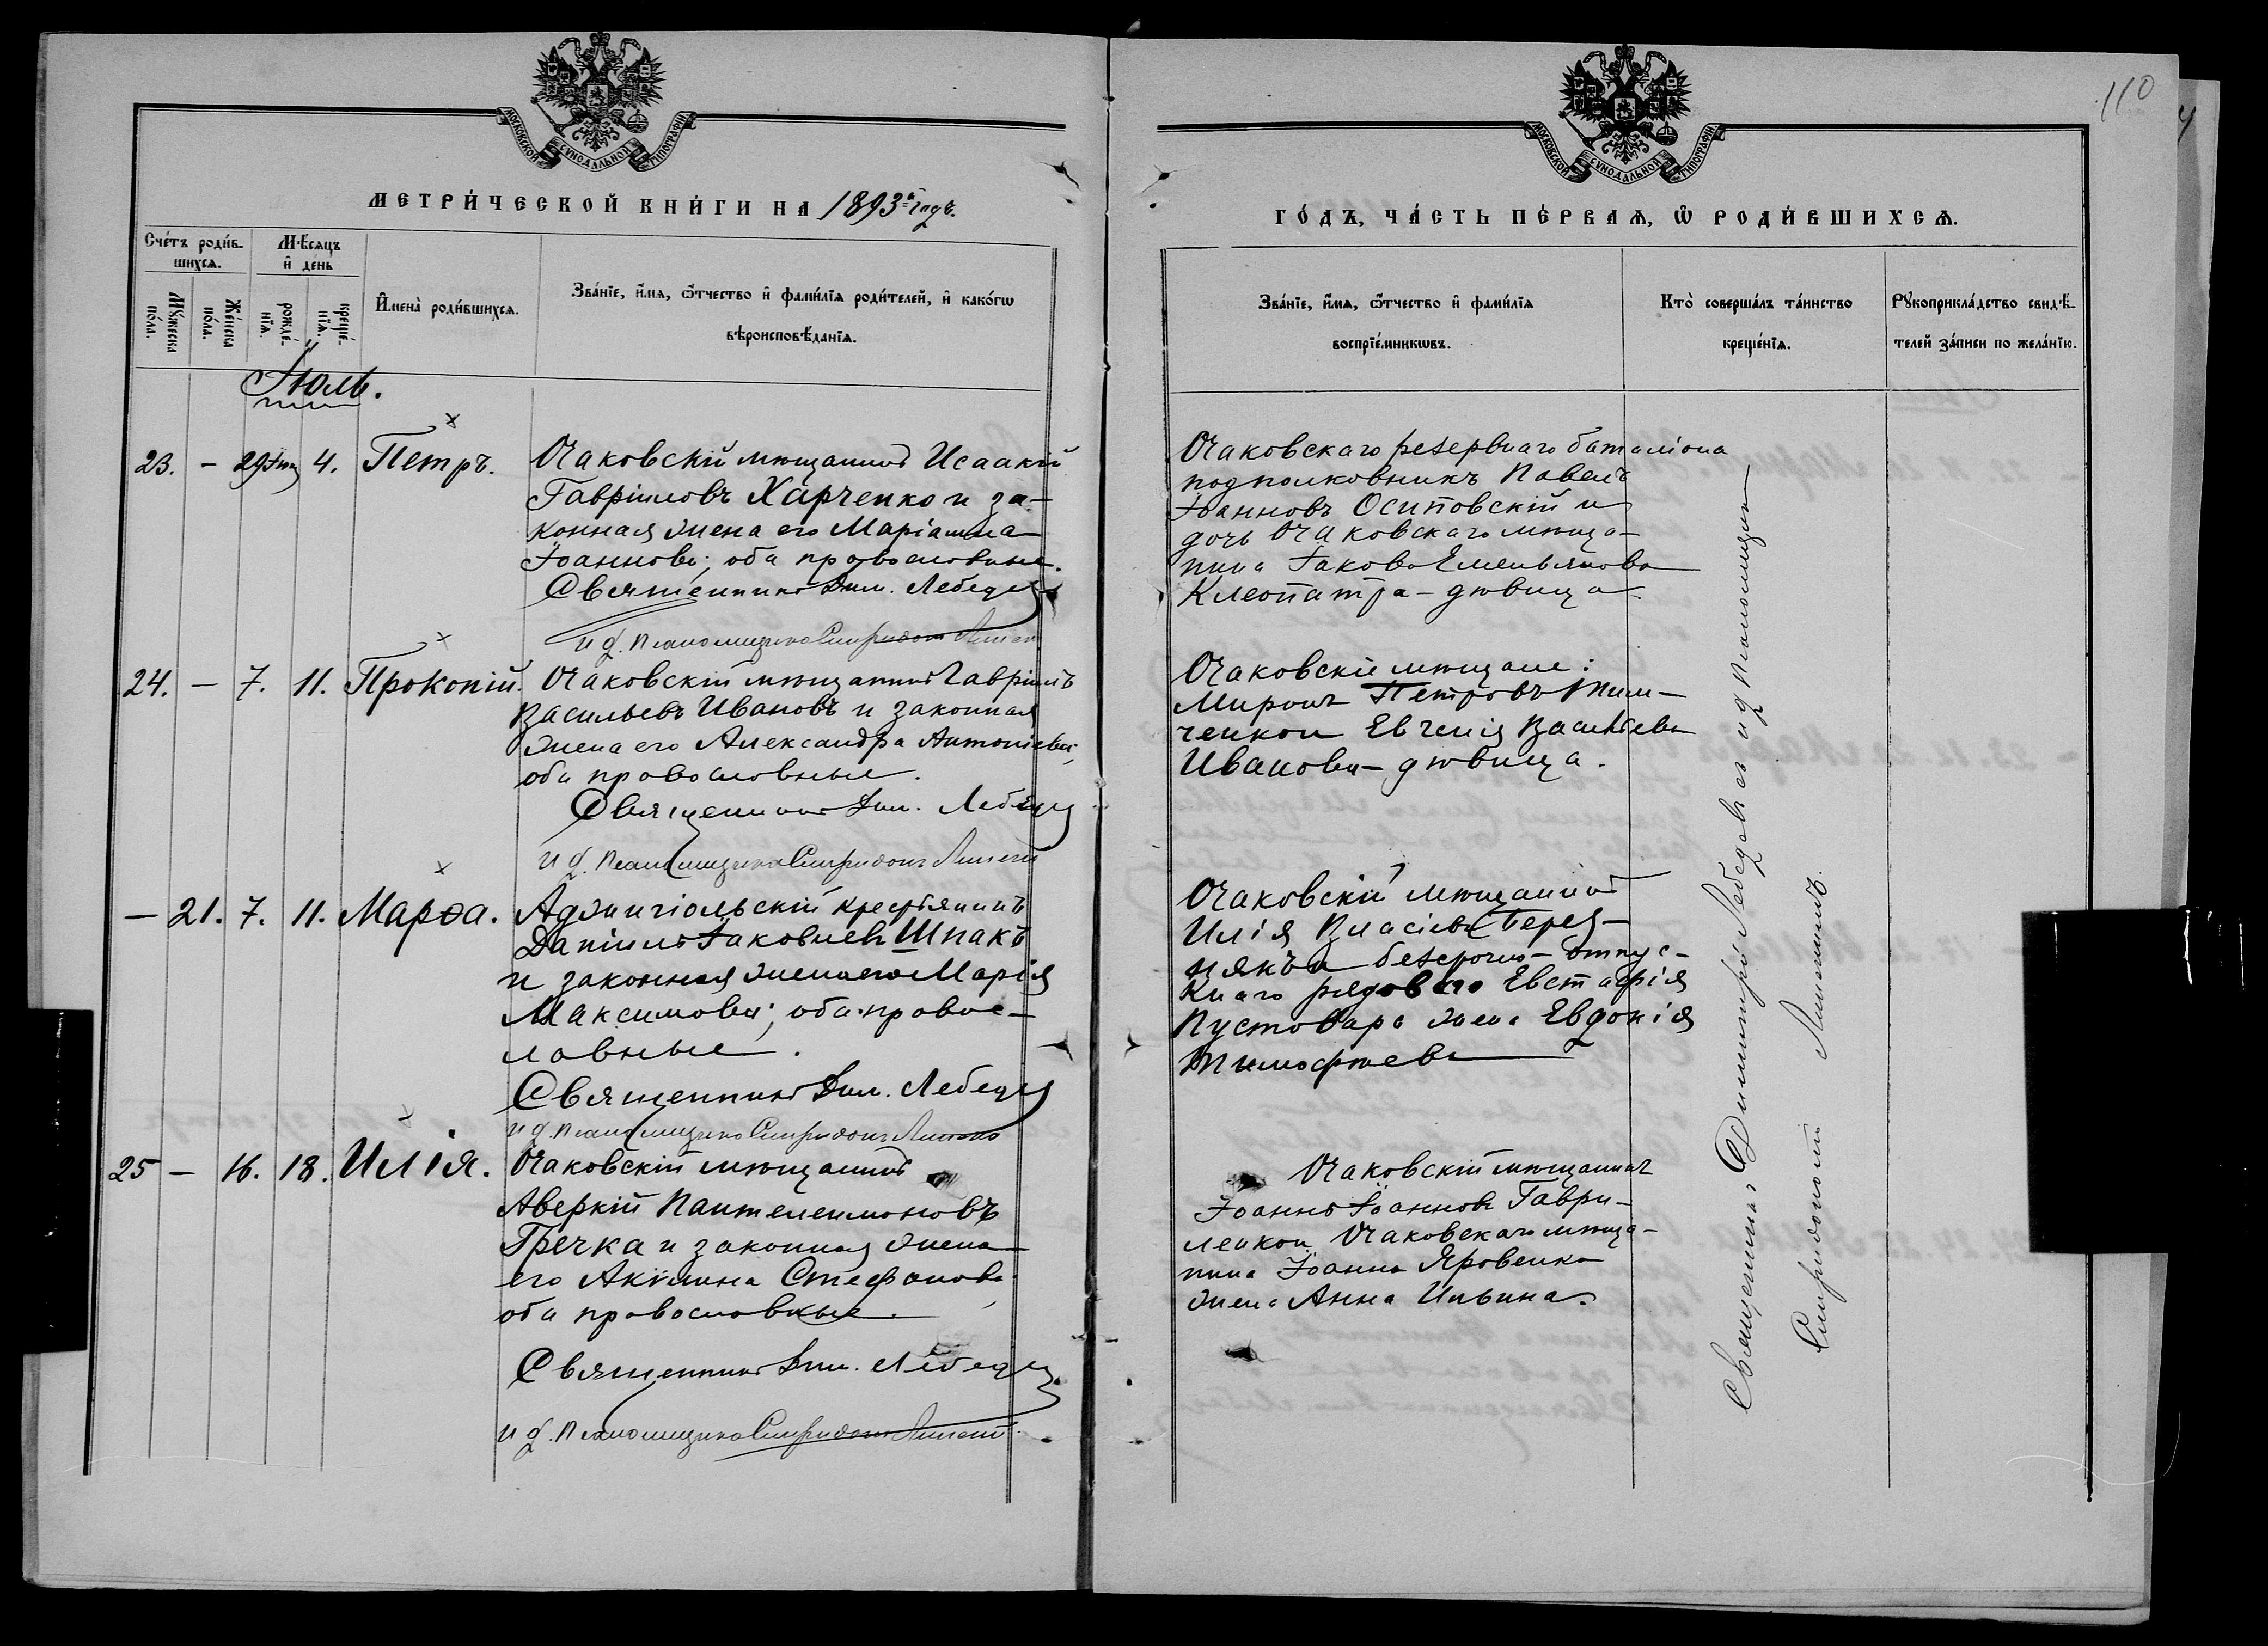 110
МОСКОВСКОЙ СѴНОДАЛЬНОЙ ТИПОГРАФІИ
МЕТРИ́ЧЕСКОЙ КНИ́ГИ НА 1893й годъ.
Сче́тъ роди́в-
шихсѧ.
Мѣ́сѧцъ
и҆ де́нь
Мꙋ́жеска
по́ла.
Же́нска
по́ла.
рожде́-
нїѧ.
креще́-
нїѧ.
И҆мена̀ роди́вшихсѧ.
Зва́нїе, и҆́мѧ, ѻ҆́тчество и҆ фами́лїѧ роди́телей, и҆ како́гѡ
вѣроисповѣ́данїѧ.
Іюль.
23. - 29 Іюн 4. Петръ.
Очаковскій мѣщанинъ Исаакій
Гавріиловъ Харченко и за-
конная жена его Маріамна
Іоаннова; оба православные.
Священникъ Дим. Лебедев
и д. псаломщика Спиридонъ
24. - 7. 11. Прокопій.
Очаковскій мѣщанинъ Гавріилъ
Васильевъ Ивановъ и законная
жена его Александра Антоніева;
оба православные.
Священникъ Дим. Лебедев
и д. псаломщика Спиридонъ
- 21. 7. 11. Марѳа.
Аджигіольскій крестьянинъ
Даніилъ Іаковлевъ Шпакъ
и законная жена его Марія
Максимова; оба правос-
лавные.
Священникъ Дим. Лебедев
и д. псаломщика Спиридонъ
25 - 16. 18. Илія.
Очаковскій мѣщанинъ
Аверкій Пантелеимоновъ
Гречка и законная жена
его Акилина Стефанова
оба православные.
Священникъ Дим. Лебедев
и д. псаломщика Спиридонъ
МОСКОВСКОЙ СѴНОДАЛЬНОЙ ТИПОГРАФІИ
ГО́ДЪ, ЧА́СТЬ ПЕ́РВАѦ, Ѡ҆ РОДИ́ВШИХСѦ.
Зва́нїе, и҆́мѧ, ѻ҆́тчество и҆ фами́лїѧ
воспрїе́мникѡвъ.
Кто̀ соверша́лъ та́инство
креще́нїѧ.
Рꙋкоприкла́дство свидѣ́-
телей за́писи по жела́нїю.
Очаковскаго резервнаго баталіона
подполковникъ Павелъ
Іоанновъ Осиповскій и
дочь Очаковскаго мѣща-
нина Іакова Емельянова
Клеопатра - дѣвица
Очаковскіе мѣщане:
Миронъ Петровъ Тим-
ченко и Евгенія Васильева
Иванова - дѣвица.
Очаковскій мѣщанинъ
Илія Власіевъ Берез-
някъ и безсрочно - отпус-
кнаго рядоваго Евстафія
Пустовара жена Евдокія
Тимофѣева
Очаковскій мѣщанинъ
Іоаннъ Іоанновъ Гаври-
ленко и Очаковскаго мѣща-
нина Іоанна Яровенко
жена Анна Ильина.
Священникъ Димитрій Лебедевъ и д псаломщика
Спиридонъ